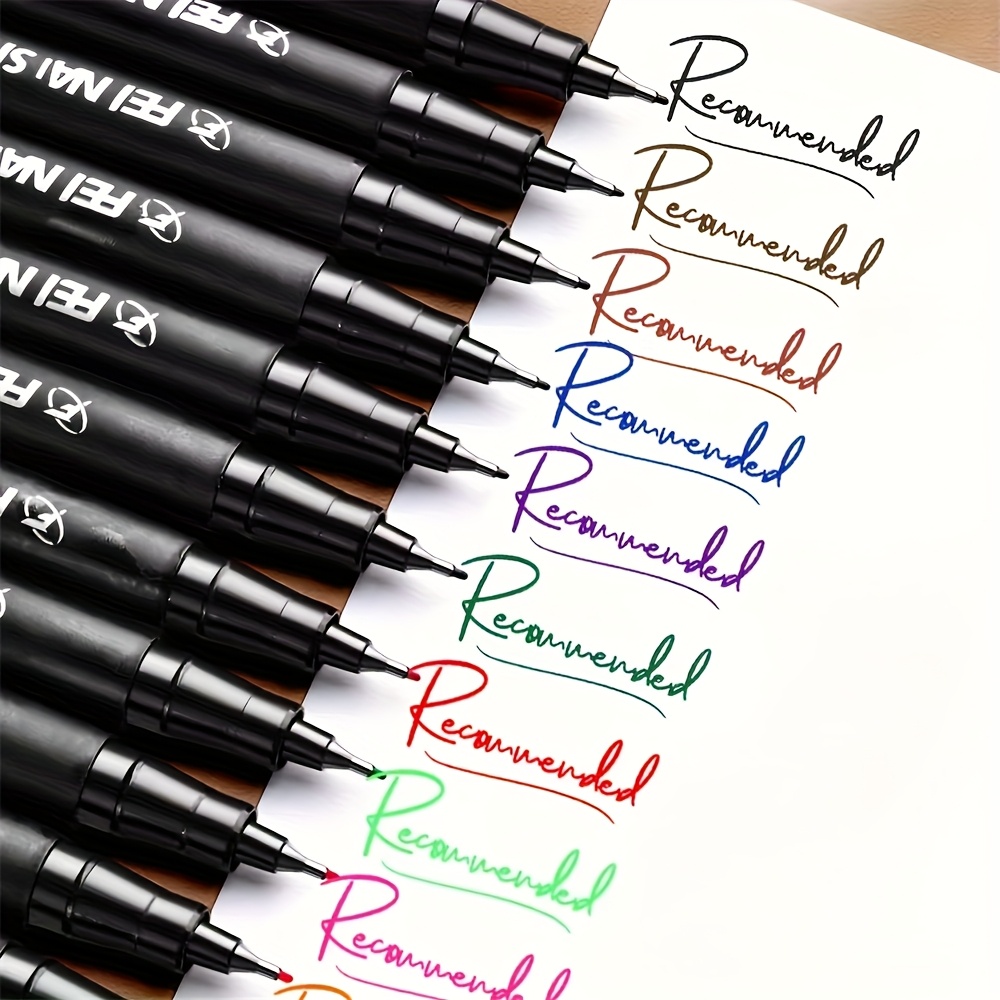 FEI
FEI NAI
FEI NAI
FEI N
Recommended
Recommended
Recommended
Recommended
Recommended
Recommended
Recommended
Recommended
Recommended